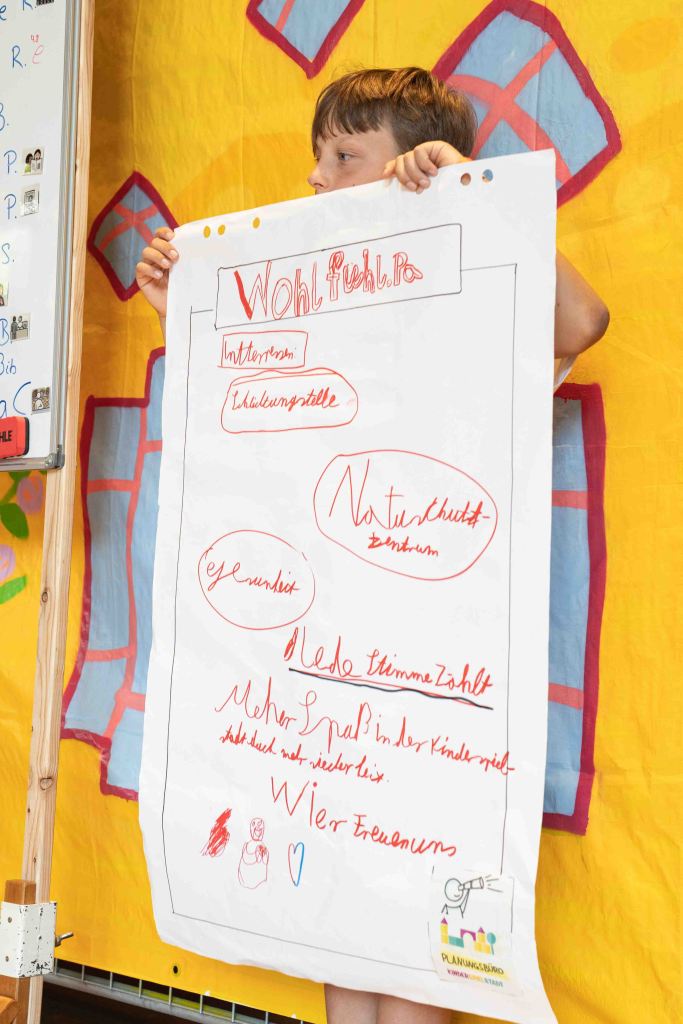 R. e
B.
P.
P.
S.
B
Bib
C
HLE
Wohlfuehl.Pa
Intterressen:
Schlückungstelle
Naturschutz-
zentrum
gesunheit
Jede Stimme Zählt
Meher Spaß in der Kinderspiel-
stadt duch mehr
Wier Freuen uns
PLANUNGSBÜRO
KINDERSPIELSTADT